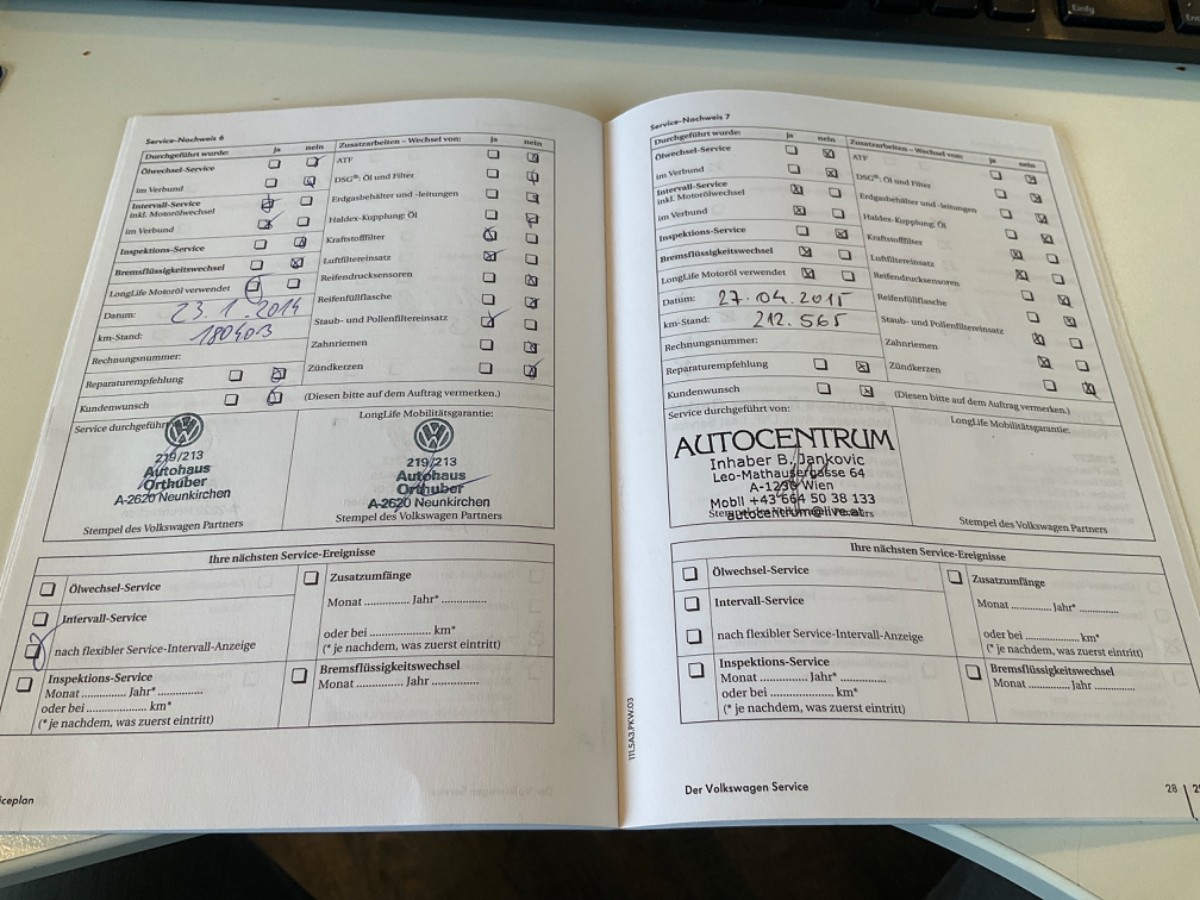 Einfg
Service-Nachweis 6
Durchgeführt wurde: ja nein
Ölwechsel-Service
im Verbund
Intervall-Service
inkl. Motorölwechsel
im Verbund
Inspektions-Service
Bremsflüssigkeitswechsel
LongLife Motoröl verwendet
Datum: 23.1.2014
km-Stand: 180403
Rechnungsnummer:
Reparaturempfehlung
Kundenwunsch
Zusatzarbeiten – Wechsel von: ja nein
ATF
DSG®: Öl und Filter
Erdgasbehälter und -leitungen
Haldex-Kupplung: Öl
Kraftstofffilter
Luftfiltereinsatz
Reifendrucksensoren
Reifenfüllflasche
Staub- und Pollenfiltereinsatz
Zahnriemen
Zündkerzen
(Diesen bitte auf dem Auftrag vermerken.)
Service durchgeführt
219/213
Autohaus
Orthuber
A-2620 Neunkirchen
Stempel des Volkswagen Partners
LongLife Mobilitätsgarantie:
219/213
Autohaus
Orthuber
A-2620 Neunkirchen
Stempel des Volkswagen Partners
Ihre nächsten Service-Ereignisse
Ölwechsel-Service
Intervall-Service
nach flexibler Service-Intervall-Anzeige
Inspektions-Service
Monat ............. Jahr* .............
oder bei ..................... km*
(* je nachdem, was zuerst eintritt)
Zusatzumfänge
Monat ............... Jahr* ...............
oder bei ..................... km*
(* je nachdem, was zuerst eintritt)
Bremsflüssigkeitswechsel
Monat ............... Jahr ...............
iceplan
Service-Nachweis 7
Durchgeführt wurde: ja nein
Ölwechsel-Service
im Verbund
Intervall-Service
inkl. Motorölwechsel
im Verbund
Inspektions-Service
Bremsflüssigkeitswechsel
LongLife Motoröl verwendet
Datum: 27.04.2015
km-Stand: 212.565
Rechnungsnummer:
Reparaturempfehlung
Kundenwunsch
Zusatzarbeiten – Wechsel von: ja nein
ATF
DSG®: Öl und Filter
Erdgasbehälter und -leitungen
Haldex-Kupplung: Öl
Kraftstofffilter
Luftfiltereinsatz
Reifendrucksensoren
Reifenfüllflasche
Staub- und Pollenfiltereinsatz
Zahnriemen
Zündkerzen
(Diesen bitte auf dem Auftrag vermerken.)
Service durchgeführt von:
AUTOCENTRUM
Inhaber B. Jankovic
Leo-Mathausergasse 64
A-1230 Wien
Mobil +43 664 50 38 133
autocentrum@live.at
LongLife Mobilitätsgarantie:
Stempel des Volkswagen Partners
Ihre nächsten Service-Ereignisse
Ölwechsel-Service
Intervall-Service
nach flexibler Service-Intervall-Anzeige
Inspektions-Service
Monat ............. Jahr* .............
oder bei ..................... km*
(* je nachdem, was zuerst eintritt)
Zusatzumfänge
Monat ............. Jahr* .............
oder bei ..................... km*
(* je nachdem, was zuerst eintritt)
Bremsflüssigkeitswechsel
Monat ............. Jahr .............
111.5A3.PKW.03
Der Volkswagen Service
28